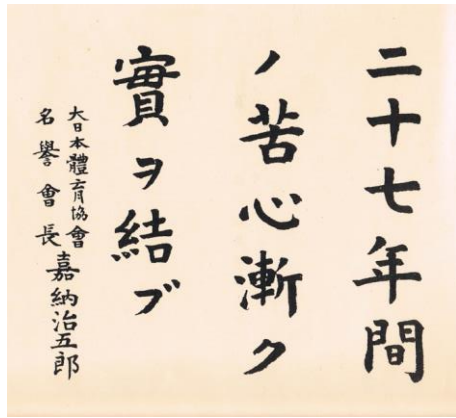 二十七年間
ノ苦心漸ク
實ヲ結ブ
大日本體育協會
名譽會長
嘉納治五郎